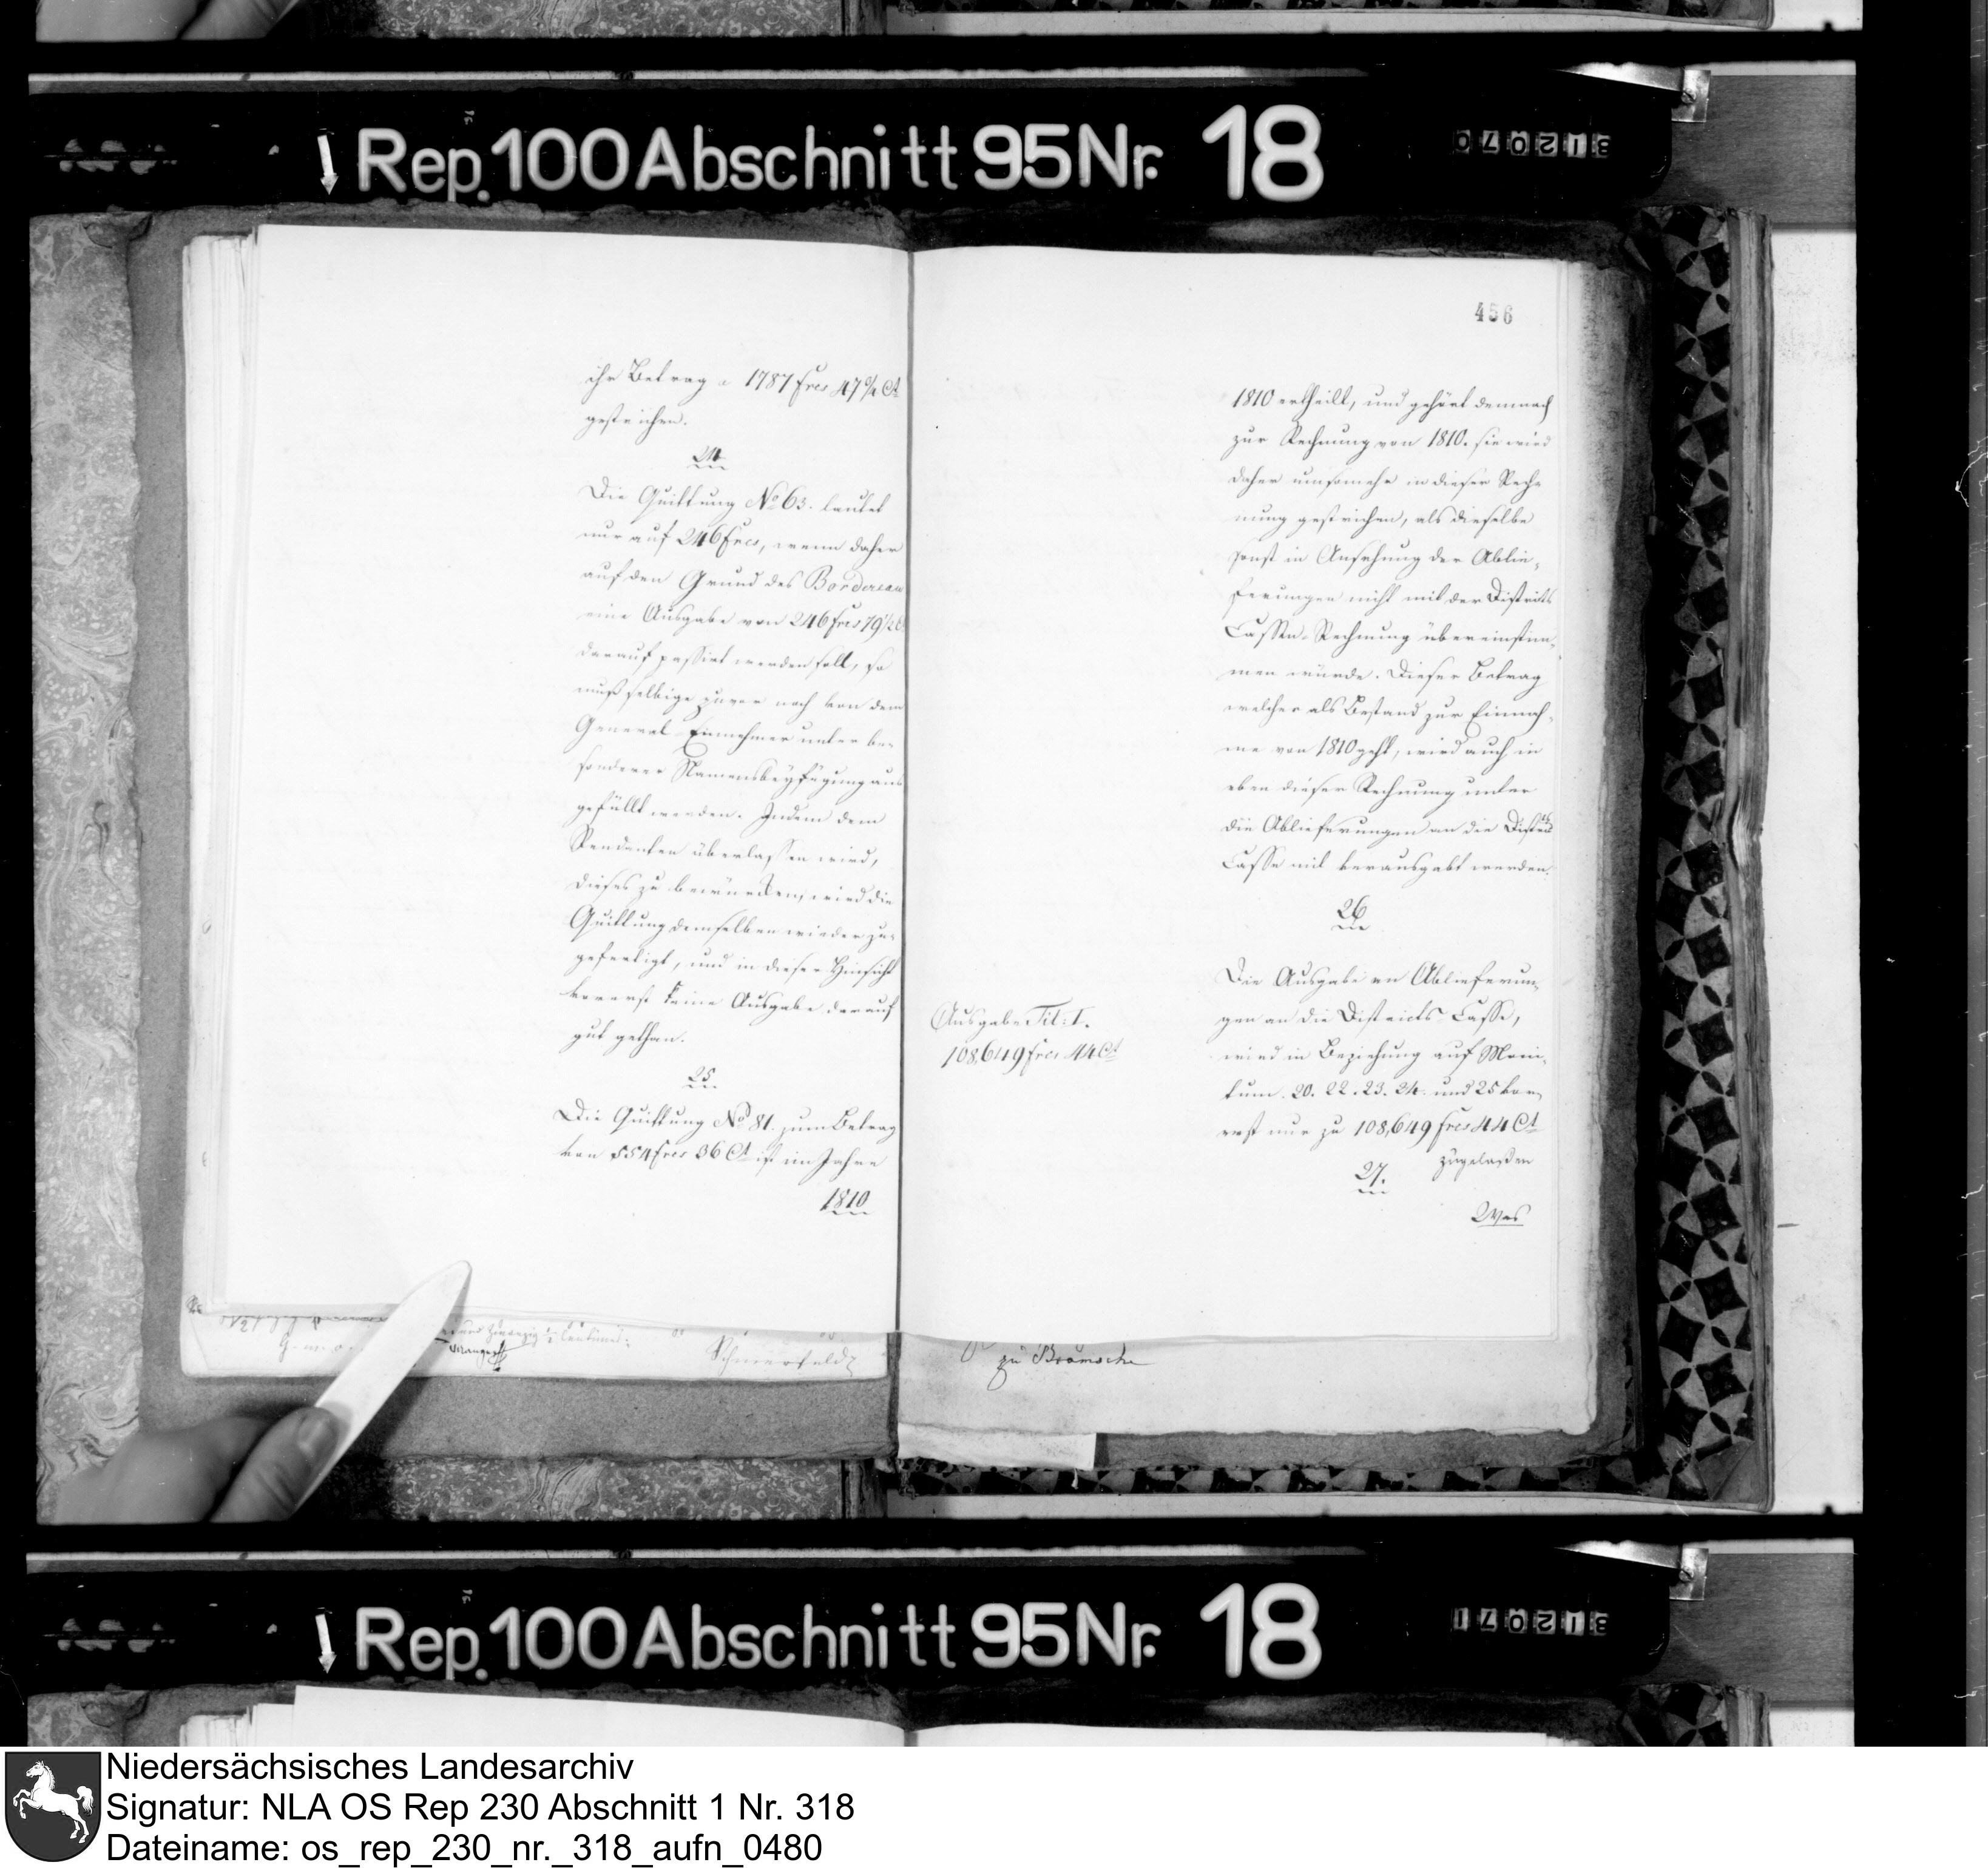 Rep. 100 Abschnitt 95 Nr. 18
312070
456
ihr Betrag 1787 frcs 47 Ct
gestrichen.
24.
Die Quittung No 63. lautet
nur auf 246 frcs, wenn daher
auf den Grund des Bordereau
eine Ausgabe von 246 frcs 79½ C
darauf passirt werden soll, so
muß selbige zuvor noch von dem
General-Einnehmer unter be-
sonderer Namensbeyfügung aus
gefüllt werden. Indem dem
Rendanten überlassen wird,
dieses zu bewürcken, wird die
Quittung demselben wieder zu-
gefertigt, und in dieser Hinsicht
vorerst keine Ausgabe darauf
gut gethan.
25
Die Quittung No 81. zum Betrag
von 554 frcs 36 Ct ist im Jahre
1810
1810 ertheilt, und gehört demnach
zur Rechnung von 1810. sie wird
daher umsomehr in dieser Rech-
nung gestrichen, als dieselbe
sonst in Ansehung der Ablie-
ferungen nicht mit der Districts
Cassen-Rechnung übereinstim-
men würde. Dieser Betrag
welcher als Bestand zur Einnah-
me von 1810 geht, wird auch in
eben dieser Rechnung unter
die Ablieferungen an die Districts
Casse mit verausgabt werden.
26
Ausgabe Tit: I.
108,649 frcs 44 Ct
Die Ausgabe an Ablieferun-
gen an die Districts-Casse,
wird in Beziehung auf Moni-
tum. 20. 22. 23. 24. und 25 vor-
erst nur zu 108,649 frcs 44 Ct
zugelaßen
27.
Was
zu Bramsche
Rep. 100 Abschnitt 95 Nr. 18
312071
Niedersächsisches Landesarchiv
Signatur: NLA OS Rep 230 Abschnitt 1 Nr. 318
Dateiname: os_rep_230_nr._318_aufn_0480